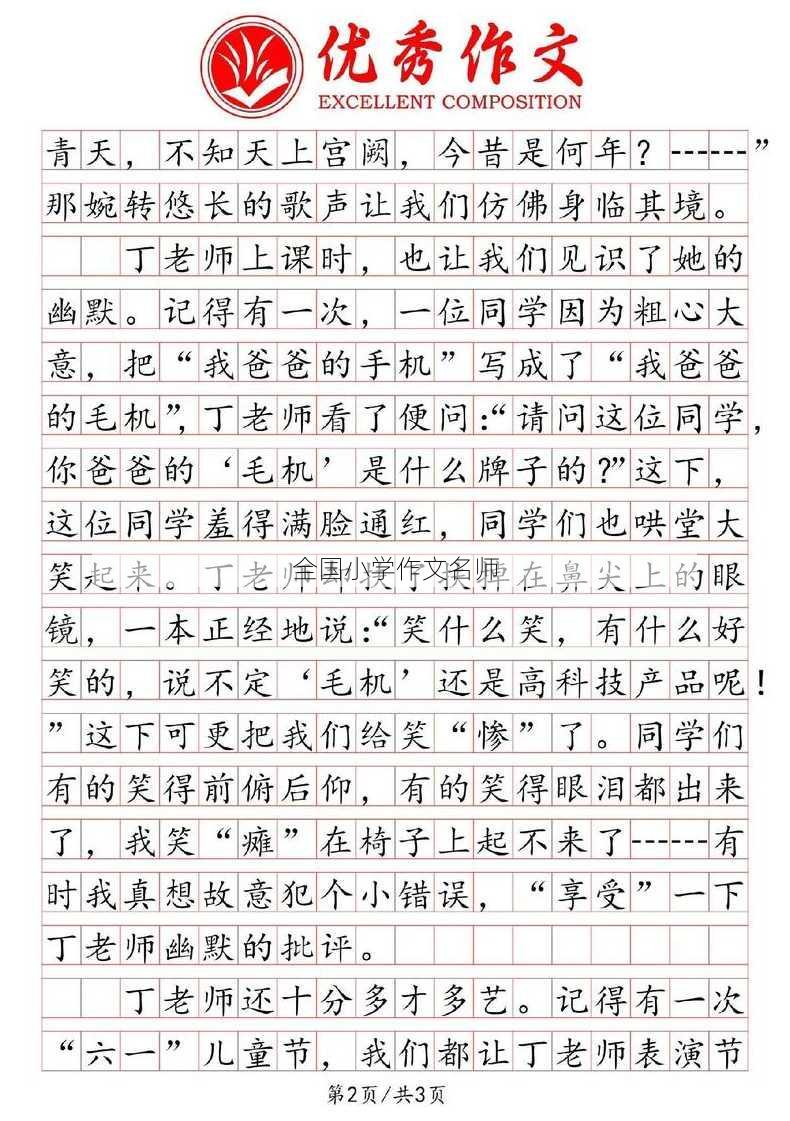 优秀作文
EXCELLENT COMPOSITION
青天，不知天上宫阙，今昔是何年？------”
那婉转悠长的歌声让我们仿佛身临其境。
丁老师上课时，也让我们见识了她的
幽默。记得有一次，一位同学因为粗心大
意，把“我爸爸的手机”写成了“我爸爸
的毛机”，丁老师看了便问：“请问这位同学，
你爸爸的‘毛机’是什么牌子的？”这下，
这位同学羞得满脸通红，同学们也哄堂大
笑起来。丁老师却扶了扶掉在鼻尖上的眼
全国小学作文名师
镜，一本正经地说：“笑什么笑，有什么好
笑的，说不定‘毛机’还是高科技产品呢！
”这下可更把我们给笑“惨”了。同学们
有的笑得前俯后仰，有的笑得眼泪都出来
了，我笑“瘫”在椅子上起不来了------有
时我真想故意犯个小错误，“享受”一下
丁老师幽默的批评。
丁老师还十分多才多艺。记得有一次
“六一”儿童节，我们都让丁老师表演节
第2页/共3页